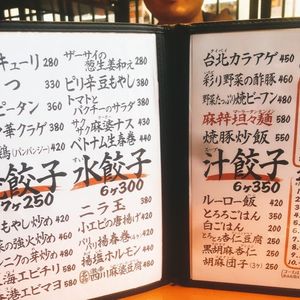 キューリ 280
つ 330
ピータン 360
華クラゲ 380
鶏(バンバンジー) 420
餃子
7ヶ 250
もやし炒め 420
の強火炒め 480
ニクの芽炒め 580
海老チリ 580
港エビマヨ 580
ザーサイの葱生姜和え 280
ピリ辛豆もやし 380
トマトとパクチーのサラダ 380
ザクザク麻婆ナス 430
ベトナム生春巻 440
水餃子
6ヶ300
ニラ玉 420
小エビの唐揚げ 420
パリパリ揚春巻 440
揚塩ホルモン 480
四川麻婆豆腐 480
台北カラアゲ 450
彩り野菜の酢豚 450
野菜たっぷり焼ビーフン 480
麻辣坦々麺 580
焼豚炒飯 580
汁餃子
6ヶ350
ルーロー飯 380
とろろごはん 350
白ごはん 200
とろとろ杏仁豆腐 380
黒胡麻杏仁 380
胡麻団子(3ヶ) 380